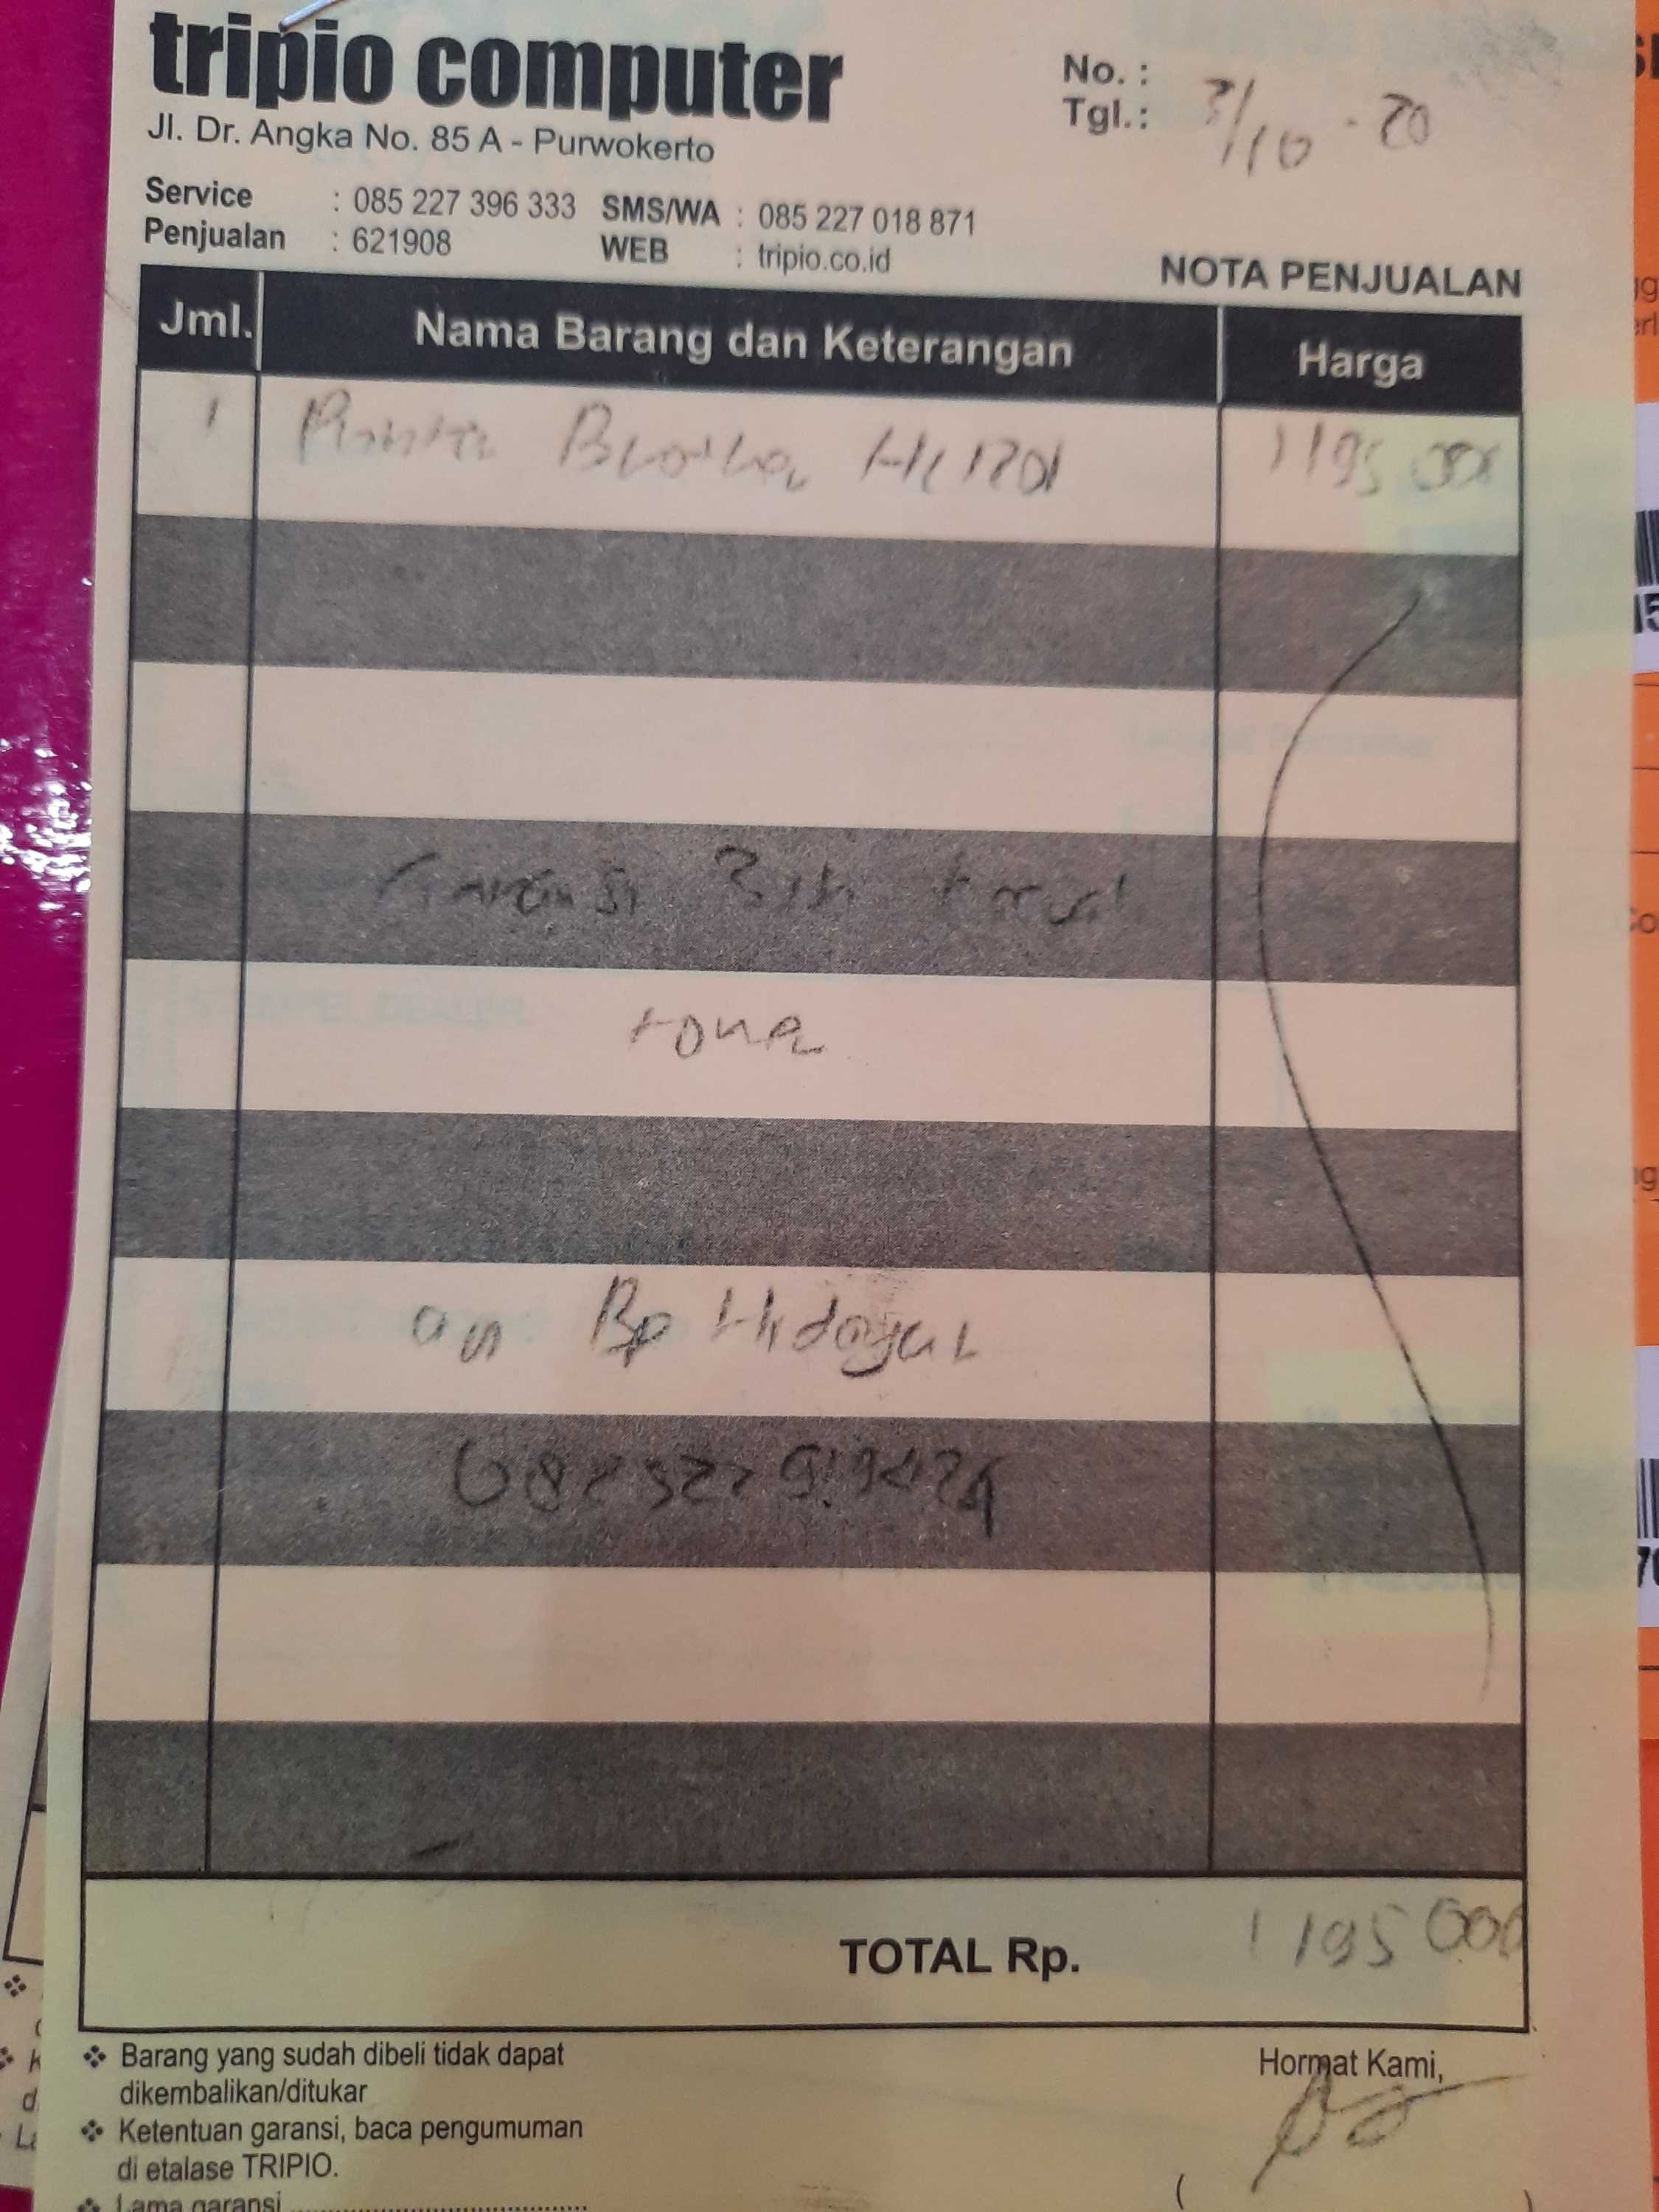 tripio computer
Jl. Dr. Angka No. 85 A - Purwokerto
No. :
Tgl. : 3/10 - 20
Service : 085 227 396 333 SMS/WA : 085 227 018 871
Penjualan : 621908 WEB : tripio.co.id
NOTA PENJUALAN
Jml. Nama Barang dan Keterangan Harga
1 Printer Brother HL1201 1195 000
Garansi 3 th
toner
an Bp Hidayat
TOTAL Rp. 1195 000
Barang yang sudah dibeli tidak dapat
dikembalikan/ditukar
Ketentuan garansi, baca pengumuman
di etalase TRIPIO.
Lama garansi
Hormat Kami,
( )